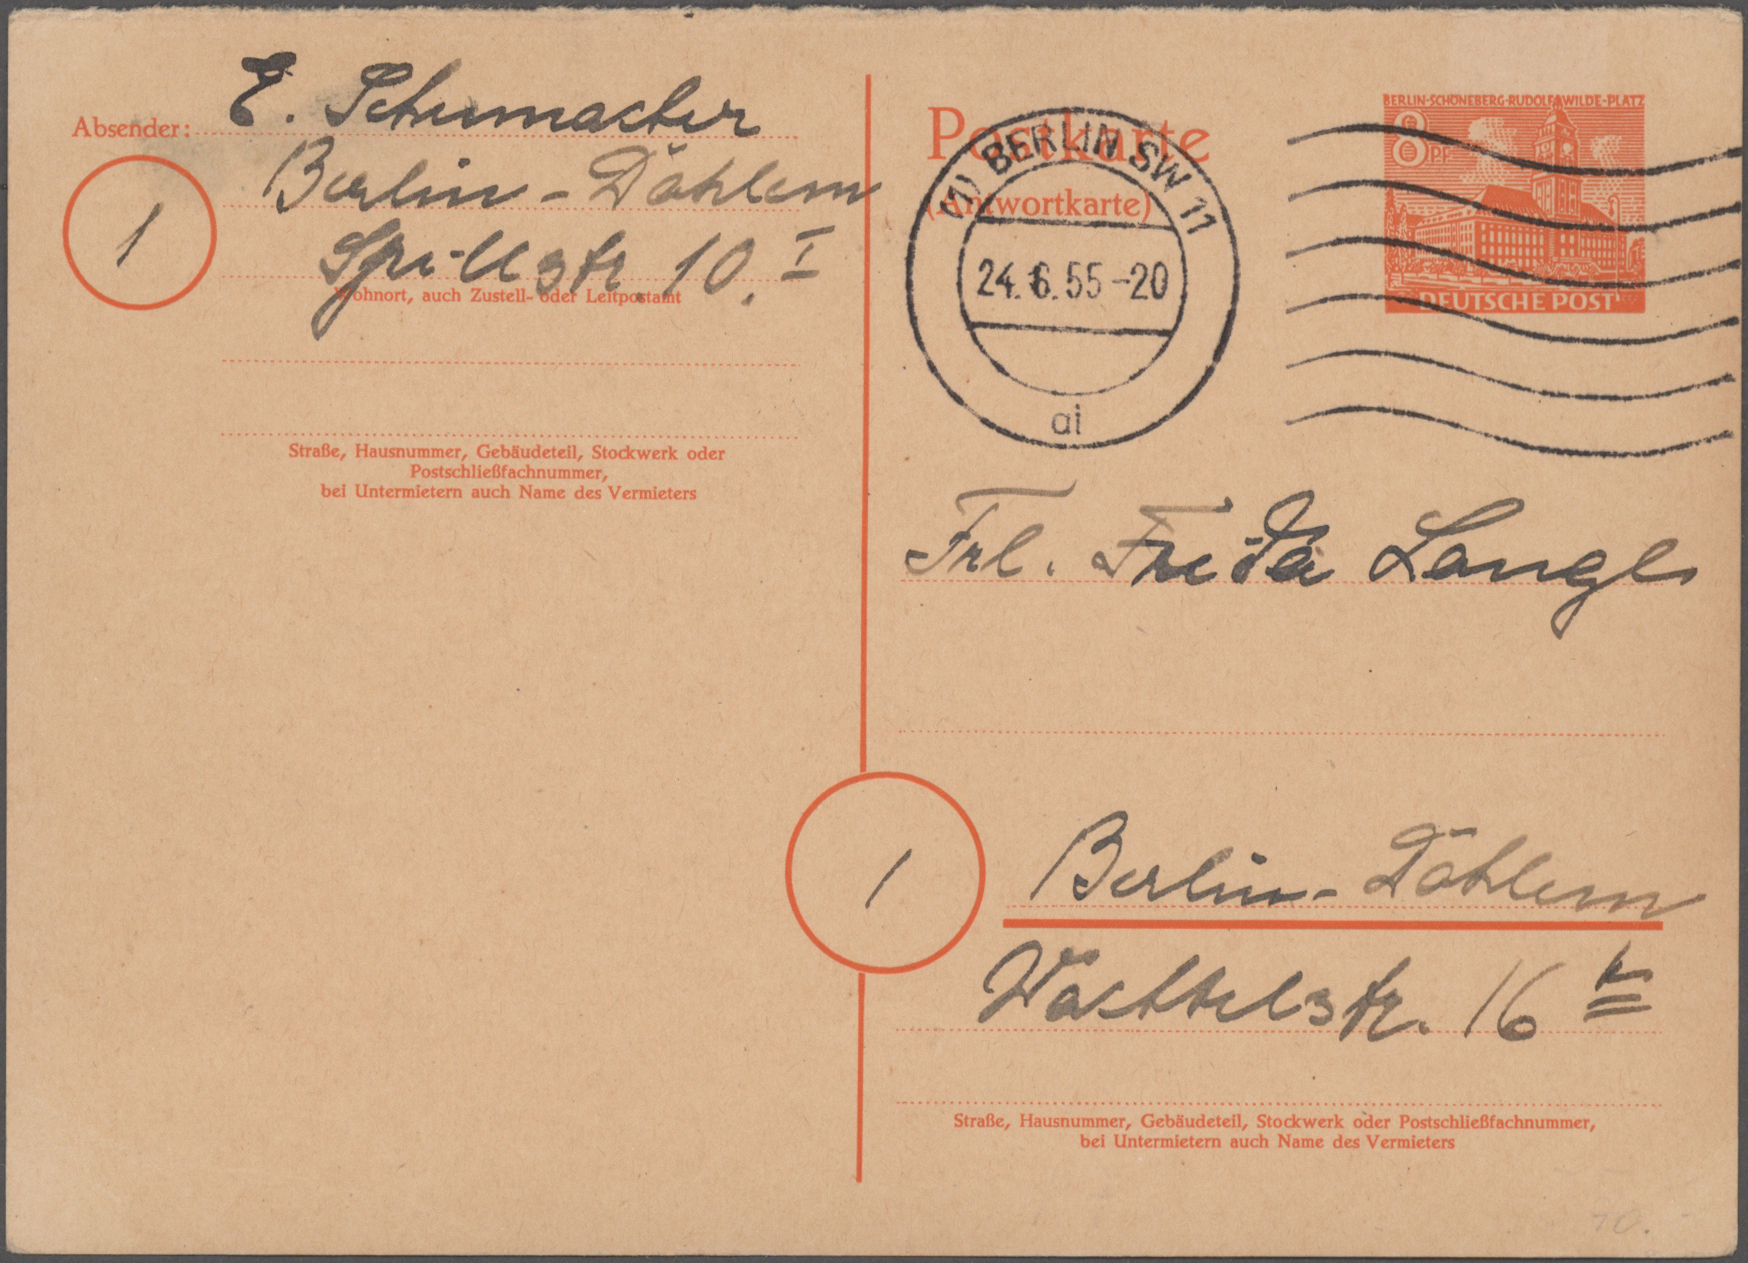 Absender: E. Schumacher
Berlin-Dahlem
1
Spilstr. 10. I
Wohnort, auch Zustell- oder Leitpostamt
Straße, Hausnummer, Gebäudeteil, Stockwerk oder
Postschließfachnummer,
bei Untermietern auch Name des Vermieters
Postkarte
(Antwortkarte)
(1) BERLIN SW 11
24.6.55-20
ai
BERLIN-SCHÖNEBERG·RUDOLF-WILDE-PLATZ
8 PF
DEUTSCHE POST
Frl. Frieda Lange
1
Berlin-Dahlem
Wachtelstr. 16
Straße, Hausnummer, Gebäudeteil, Stockwerk oder Postschließfachnummer,
bei Untermietern auch Name des Vermieters